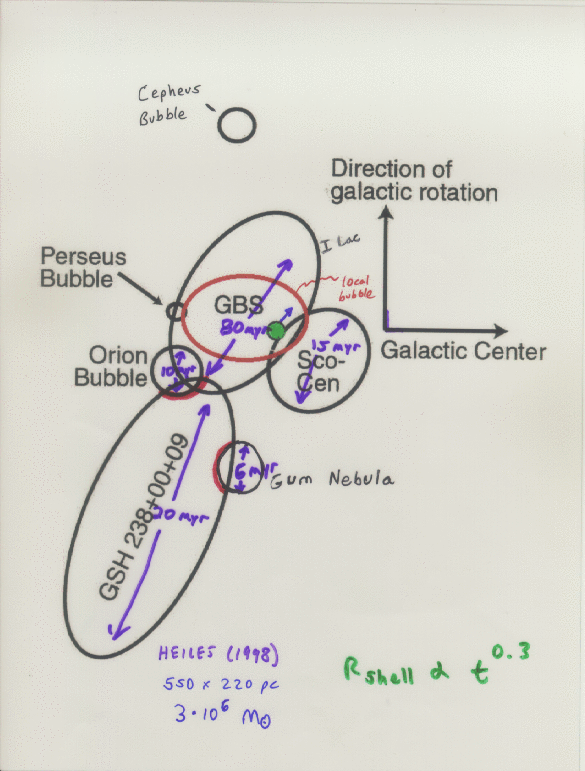 Cepheus
Bubble
Direction of
galactic rotation
I Lac
Perseus
Bubble
local
bubble
GBS
80 myr
Orion
Bubble
10 myr
15 myr
Sco-
Cen
Galactic Center
6 myr
Gum Nebula
GSH 238+00+09
20 myr
HEILES (1998)
550 x 220 pc
3·10⁶ M⊙
R shell α t^0.3